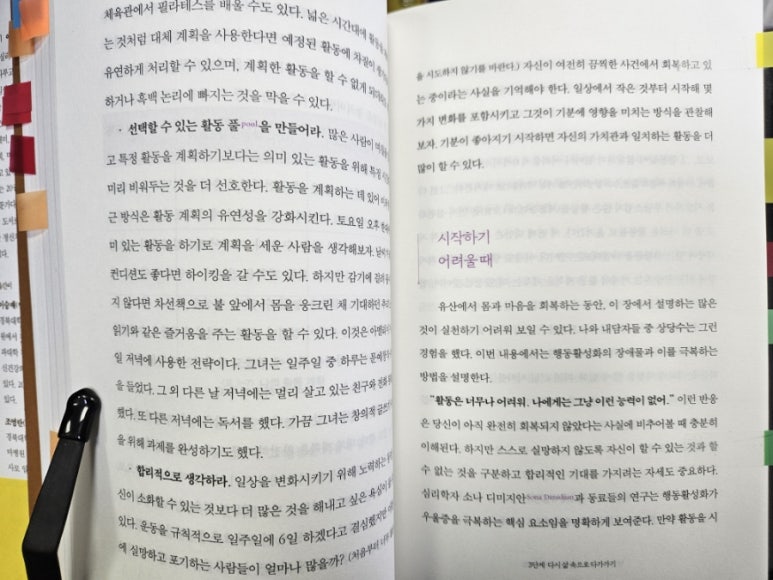 체육관에서 필라테스를 배울 수도 있다. 넓은 시간대에 활동을
는 것처럼 대체 계획을 사용한다면 예정된 활동에 차질이
유연하게 처리할 수 있으며, 계획한 활동을 할 수 없게
하거나 흑백 논리에 빠지는 것을 막을 수 있다.
· 선택할 수 있는 활동 풀pool을 만들어라. 많은 사람이
고 특정 활동을 계획하기보다는 의미 있는 활동을 위해 특정
미리 비워두는 것을 더 선호한다. 활동을 계획하는 데 있어
근 방식은 활동 계획의 유연성을 강화시킨다. 토요일 오후
미 있는 활동을 하기로 계획을 세운 사람을 생각해보자.
컨디션도 좋다면 하이킹을 갈 수도 있다. 하지만 감기에
지 않다면 차선책으로 불 앞에서 몸을 웅크린 채 기대하던
읽기와 같은 즐거움을 주는 활동을 할 수 있다. 이것은
일 저녁에 사용한 전략이다. 그녀는 일주일 중 하루는
을 들었다. 그 외 다른 날 저녁에는 멀리 살고 있는 친구와
했다. 또 다른 저녁에는 독서를 했다. 가끔 그녀는 창의적
을 위해 과제를 완성하기도 했다.
· 합리적으로 생각하라. 일상을 변화시키기 위해 노력하는
신이 소화할 수 있는 것보다 더 많은 것을 해내고 싶은 욕심이
있다. 운동을 규칙적으로 일주일에 6일 하겠다고 결심했지만
에 실망하고 포기하는 사람들이 얼마나 많을까? (처음부터
을 시도하지 않기를 바란다.) 자신이 여전히 끔찍한 사건에서 회복하고 있
는 중이라는 사실을 기억해야 한다. 일상에서 작은 것부터 시작해 몇
가지 변화를 포함시키고 그것이 기분에 영향을 미치는 방식을 관찰해
보자. 기분이 좋아지기 시작하면 자신의 가치관과 일치하는 활동을 더
많이 할 수 있다.
시작하기
어려울 때
유산에서 몸과 마음을 회복하는 동안, 이 장에서 설명하는 많은
것이 실천하기 어려워 보일 수 있다. 나와 내담자들 중 상당수는 그런
경험을 했다. 이번 내용에서는 행동활성화의 장애물과 이를 극복하는
방법을 설명한다.
"활동은 너무나 어려워. 나에게는 그냥 이런 능력이 없어." 이런 반응
은 당신이 아직 완전히 회복되지 않았다는 사실에 비추어볼 때 충분히
이해된다. 하지만 스스로 실망하지 않도록 자신이 할 수 있는 것과 할
수 없는 것을 구분하고 합리적인 기대를 가지려는 자세도 중요하다.
심리학자 소나 디미지안Sona Dimidjian과 동료들의 연구는 행동활성화가
우울증을 극복하는 핵심 요소임을 명확하게 보여준다. 만약 활동을 시
3단계 다시 삶 속으로 다가가기